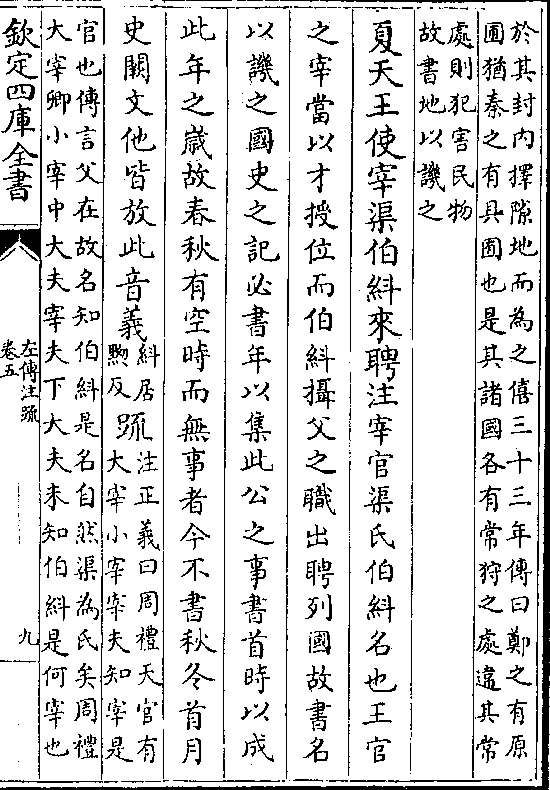 於其封内擇隙地而為之僖三十三年傳曰鄭之有原
圃猶秦之有具囿也是其諸國各有常狩之處違其常
處則犯害民物
故書地以譏之
夏天王使宰渠伯糾來聘注宰官渠氏伯糾名也王官
之宰當以才授位而伯糾攝父之職出聘列國故書名
以譏之國史之記必書年以集此公之事書首時以成
此年之嵗故春秋有空時而無事者今不書秋冬首月
史闕文他皆放此音義
糾居
黝反
疏
注正義曰周禮天官有
大宰小宰宰夫知宰是
官也傳言父在故名知伯糾是名自然渠為氏矣周禮
大宰卿小宰中大夫宰夫下大夫未知伯糾是何宰也
欽定四庫全書
左傳注疏
卷五
九